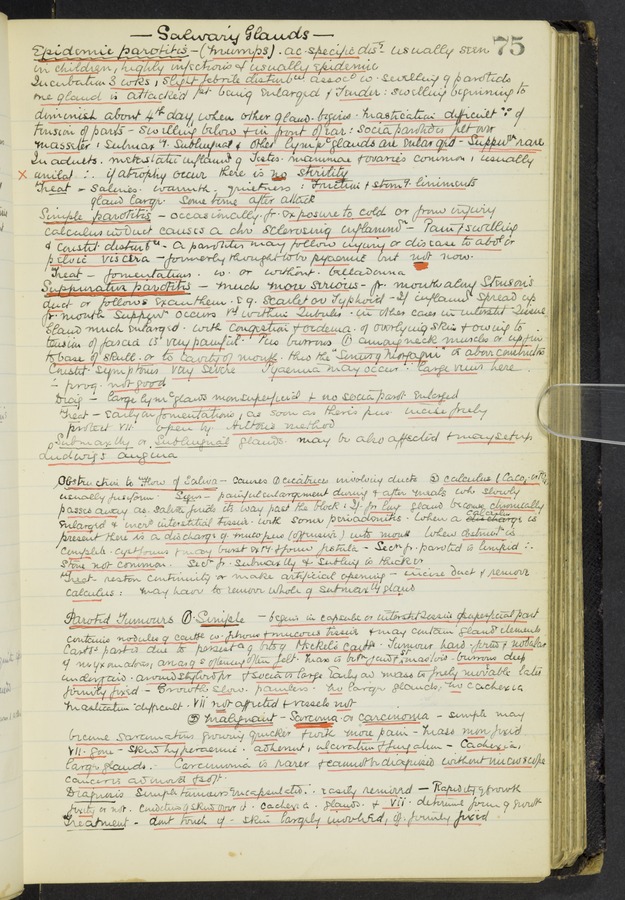 — Salivary Glands — 75
Epidemic parotitis — (Mumps). ac. specific dis. usually seen
in children, highly infectious & usually epidemic
Incubation 3 wks, slight febrile disturb assoc. w. swelling of parotids
one gland is attacked 1st being enlarged & tender: swelling beginning to
diminish about 4th day when other gland begins. Mastication difficult ∵ of
tension of parts — swelling below & in front of ear: Socia parotidis felt over
masseter: Submax & Sublingual & other lymph glands are enlarged — Suppur rare
In adults. metastatic inflam of testes. mammae & ovaries common, usually
× unilat ∴ if atrophy occur there is no sterility
Treat — Salines. warmth. quietness: friction & stimt. liniments
gland large some time after attack
Simple parotitis — occasionally fr. exposure to cold or from injury
calculus in duct causes a chr. sclerosing inflam — Pain & swelling
& constit disturb. — A parotitis may follow injury or disease to abd or
pelvic viscera — formerly thought to be pyaemic but not now.
Treat — fomentations. w. or without. belladonna
Suppurative parotitis — much more serious — fr. mouth along Stenson's
duct or follows exanthem. e.g. Scarlet or Typhoid — If inflam spread up
fr. mouth suppur occurs 1st within tubules. in other cases in interstit tissue
Gland much enlarged. with congestion & oedema. of overlying skin & owing to
tension of fascia is very painful. Pus burrows ① among neck muscles or up
to base of skull. or to cavity of mouth thus the
Constit symptoms very severe Pyaemia may occur ∵ large veins here
∴ prog. not good
Diag — large lym glands more superficial & no socia parot enlarged
Treat — early on fomentations, as soon as there is pus incise freely
protect VII. open by Hilton's method
Submaxillary or Sublingual glands. may be also affected & may set up
Ludwig's angina
Obstruction to flow of Saliva — causes ① cicatrices involving ducts ② calculus
usually fusiform. Signs — painful enlargement during & after meals who slowly
passes away as saliva finds its way past the block: If fr. long gland becomes chronically
enlarged & incr interstitial tissue. with some periadenitis. When a calculus is
present there is a discharge of mucopus (offensive) into mouth When obstruct is
complete. cyst forms & may burst ext & form fistula — Secr fr. parotid is limpid ∴
stone not common. Secr fr. submaxilly & subling is thicker
Treat. restore continuity or make artificial opening — incise duct & remove
calculus: may have to remove whole of submaxilly gland
Parotid Tumours ① Simple — begins in capsule or interstit tissue of superficial part
contains nodules of cart w. fibrous & mucous tissue & may contain gland elements
Cart part is due to persist of bits of Meckel's cart. Tumour hard. firm & nodular
if myxomatous, areas of softening often felt. Mass is betw jaw & mastoid. burrows deep
underjaw. around styloid pr. & socia is large early on mass is freely movable later
firmly fixed — Growth slow. painless. no large glands; no cachexia
Mastication difficult. VII not affected & vessels not
② Malignant — Sarcoma or carcinoma — simple may
become sarcomatous growing quicker & with more pain — mass more fixed
VII. gone — skin hyperaemic. adherent, ulceration & fungation — Cachexia,
large glands. Carcinoma is rarer & cannot be diagnosed without microscope
cancer is ad more & soft.
Diagnosis Simple tumours encapsulated ∴ easily removed — Rapidity of growth
fixity or not. condition of skin over it. cachexia. glands. & VII. determine form of growth
Treatment — dont touch if. skin largely involved, if firmly fixed